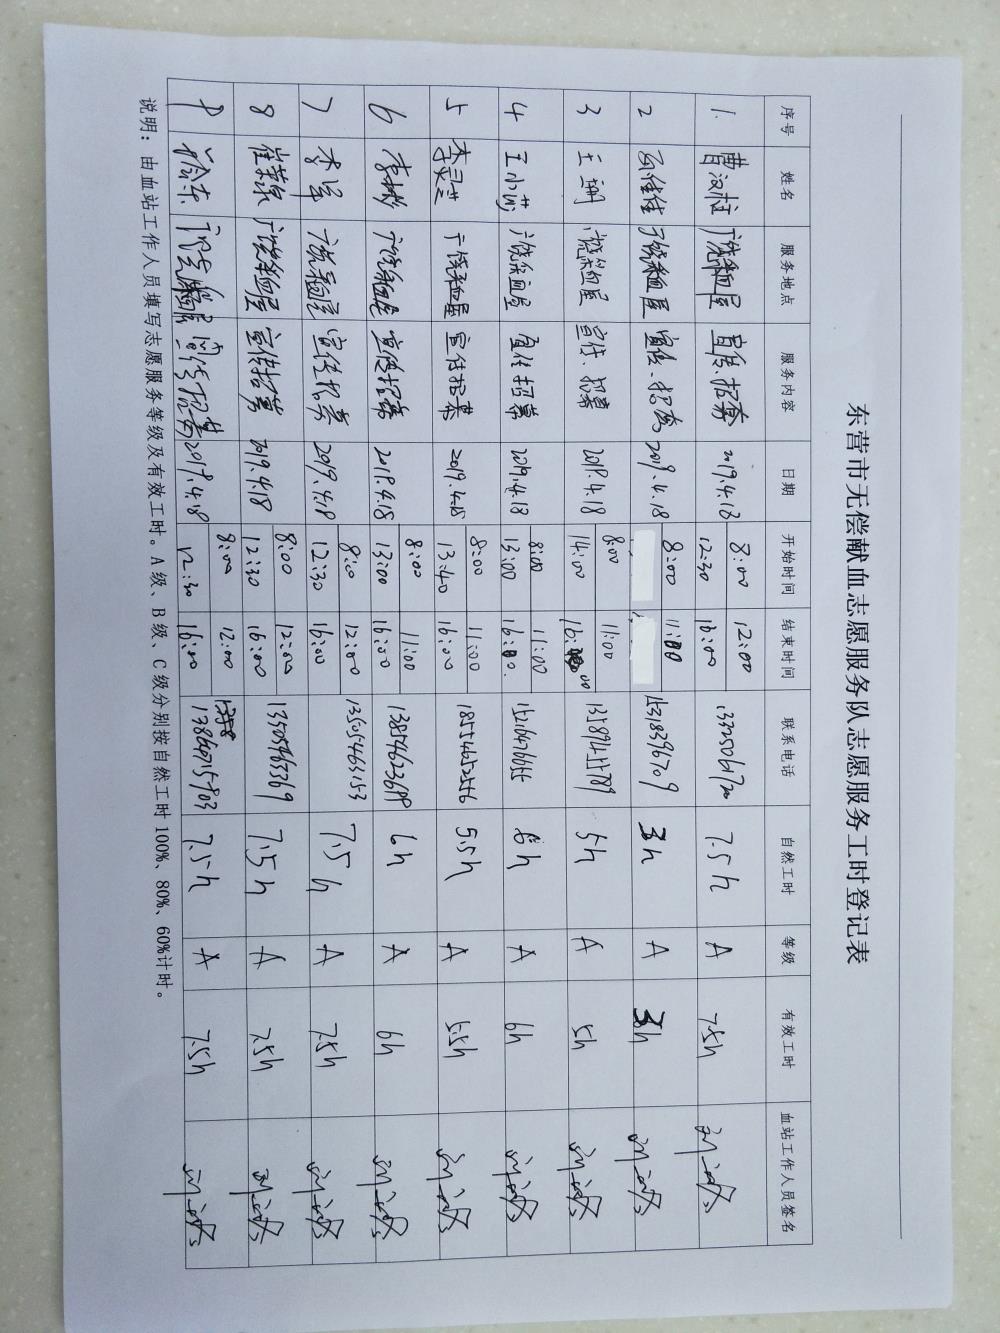 东营市无偿献血志愿服务队志愿服务工时登记表
序号 姓名 服务地点 服务内容 日期 开始时间 结束时间 联系电话 自然工时 等级 有效工时 血站工作人员签名
1. 曹汉柱 广饶采血屋 宣传、招募 2019.4.18 8:00 12:00 13325061720 7.5h A 7.5h
12:30 16:00
2 佳佳 广饶采血屋 宣传、招募 2019.4.18 8:00 11:00 15318396709 3h A 3h
3 王珊 广饶采血屋 宣传、招募 2019.4.18 8:00 11:00 13589455789 5h A 5h
14:00 16:00
4 王小芳 广饶采血屋 宣传招募 2019.4.18 8:00 11:00 15216476655 6h A 6h
13:00 16:00.
5 李灵芝 广饶采血屋 宣传招募 2019.4.18 8:00 11:00 18554652556 5.5h A 5.5h
13:40 16:00
6 李彬 广饶采血屋 宣传招募 2019.4.18 8:00 11:00 6h A 6h
13:00 16:00
7 李军 广饶采血屋 宣传招募 2019.4.18 8:00 12:00 13505463153 7.5h A 7.5h
12:30 16:00
8 崔荣泉 广饶采血屋 宣传招募 2019.4.18 8:00 12:00 13505465369 7.5h A 7.5h
12:30 16:00
9 广饶采血屋 宣传招募 2019.4.18 8:00 12:00 7.5h A 7.5h
12:30 16:00
说明：由血站工作人员填写志愿服务等级及有效工时。A级、B级、C级分别按自然工时100%、80%、60%计时。